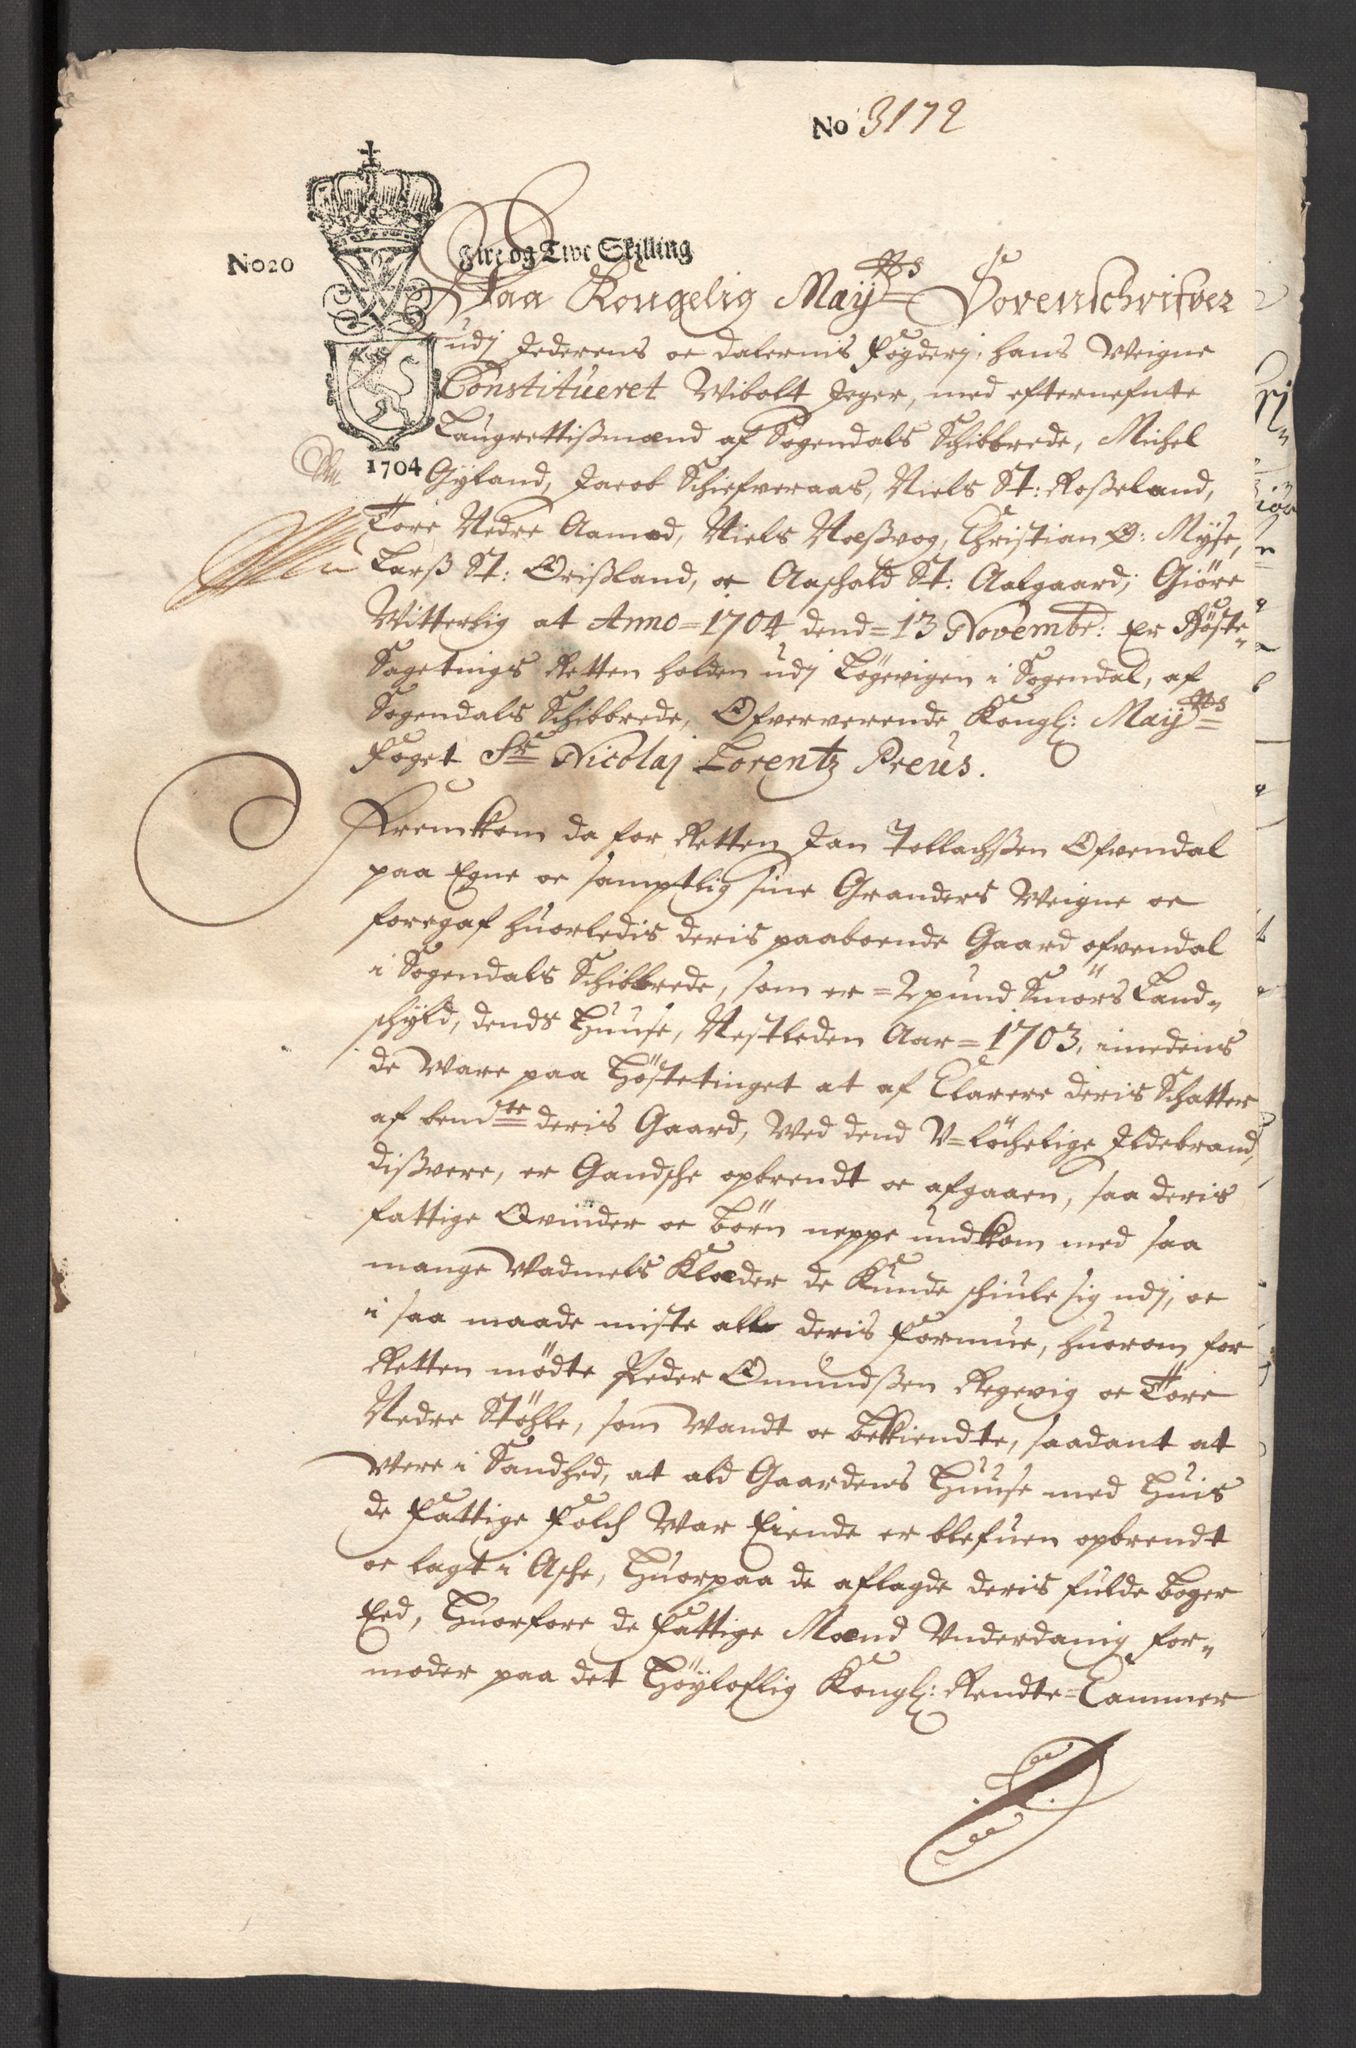 No 3172
No20
Fire og Tive Skilling
Paa Kongelig Mayts Sorenschrifver
udj Jederens oc dalernis fogderj, hans Veigne
Constitueret Wibolt Jeger, med efternefnte
Laugrettißmænd af Sogendals Schibbrede, Michel
1704
Gyland, Jacob Schiefveraas, Niels St: Roßeland,
Tore Nedre Aamod, Niels Næßvog, Christian O: Myse,
Larß St: Orißland, oc Aashold St: Aalgaard; Giöre
Witterlig at Anno=1704 dend=13 Novembr: Er Höste-
Sagetings Retten holden udj Løgevigen i Sogendal, af
Sogendals Schibbrede, Ofververende Kongl: Mayts
foget Sr Nicolaj Lorentz Preus.
Fremkom da for Retten Jan Tollachßen Ofvendal
paa Egne oc samptlig sine Granders Veigne oc
foregaf huorledis deris paaboende Gaard ofvendal
i Sogendals Schibbrede, som er =2 pund Smörs Land-
schyld, dends Huuse, Nestleden Aar=1703, imedens
de Ware paa Höstetinget at af Clarere deris Schatter
af bemte deris Gaard, Wed dend V=löchelige Ildebrand,
dißvere, er Gandsche opbrendt oc afgaaen, saa deris
fattige Qvinder oc Börn neppe undkom med saa
mange Wadmels Klæder de Kunde schiule sig udj, oc
i saa maade miste all deris formue, huorom for
Retten mödte Peder Omundßen Regevig oc Tore
Nedre Stöhle, som Wandt oc bekiendte, saadant at
Vere i Sandhed, at ald Gaardens Huuse med Huis
de fattige folch War Eiende er blefuen opbrendt
oc lagt i Asche, Huorpaa de aflagde deris fulde boger
Eed, Huorfore de fattige Mænd Vnderdanig for-
moder paa det Höyloflig Kongl: Rendte=Cammer